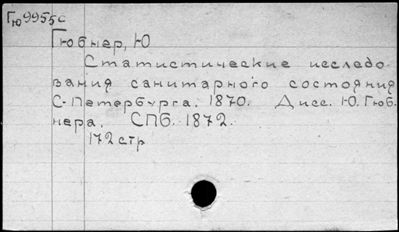 Гю9955с
Гюбнер, Ю
Статистические исследо-
вания санитарного состояния
С-Петербурга. 1870. Дисс. Ю. Гюб-
нера. СПб. 1872.
172 стр